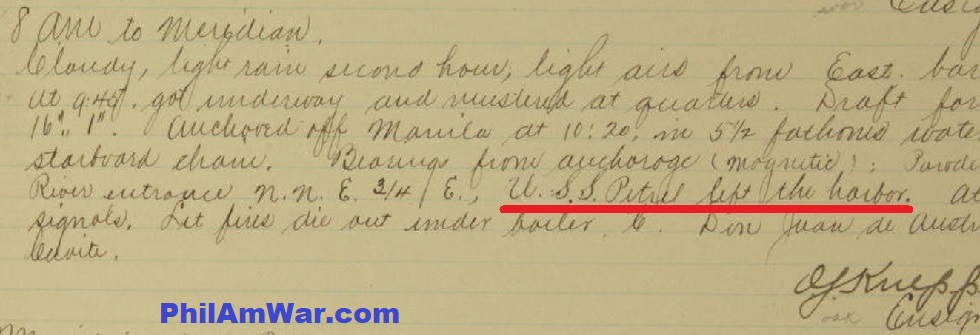 Ensig
8 AM to Meridian.
Cloudy, light rain second hour, light airs from East. bar
At 9:45. got underway and mustered at quarters. Draft for
16', 1". Anchored off Manila at 10:20, in 5 1/2 fathoms wate
starboard chain. Bearings from anchorage (magnetic): Parode
River entrance N.N.E. 3/4 E., U.S.S. Petrel left the harbor. At
signals. Let fires die out under boiler C. Don Juan de Austr
Cavite.
Ensign
PhilAmWar.com